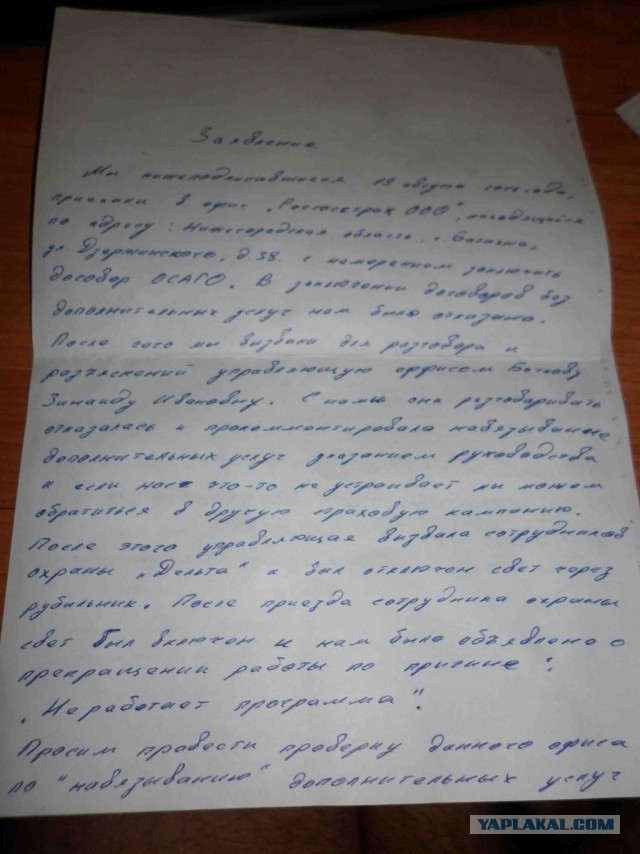 Заявление
Мы нижеподписавшиеся 19 августа года,
приехали в офис „Росгосстрах ООО", находящийся
по адресу: Нижегородская область, г. Балахна,
ул. Дзержинского, д. 38. с намерением заключить
договор ОСАГО. В заключении договоров без
дополнительных услуг нам было отказано.
После чего мы вызвали для разговора и
разъяснений управляющую оффисом
Зинаиду Ивановну. С нами она разговаривать
отказалась и прокомментировала навязывание
дополнительных услуг указанием руководства
и если нас что-то не устраивает мы можем
обратиться в другую страховую кампанию.
После этого управляющая вызвала сотрудников
охраны „Дельта" и был отключен свет через
рубильник. После приезда сотрудника охраны
свет был включен и нам было объявлено о
прекращении работы по причине:
„Не работает программа".
Просим провести проверку данного офиса
по "навязыванию" дополнительных услуг
YAPLAKAL.COM